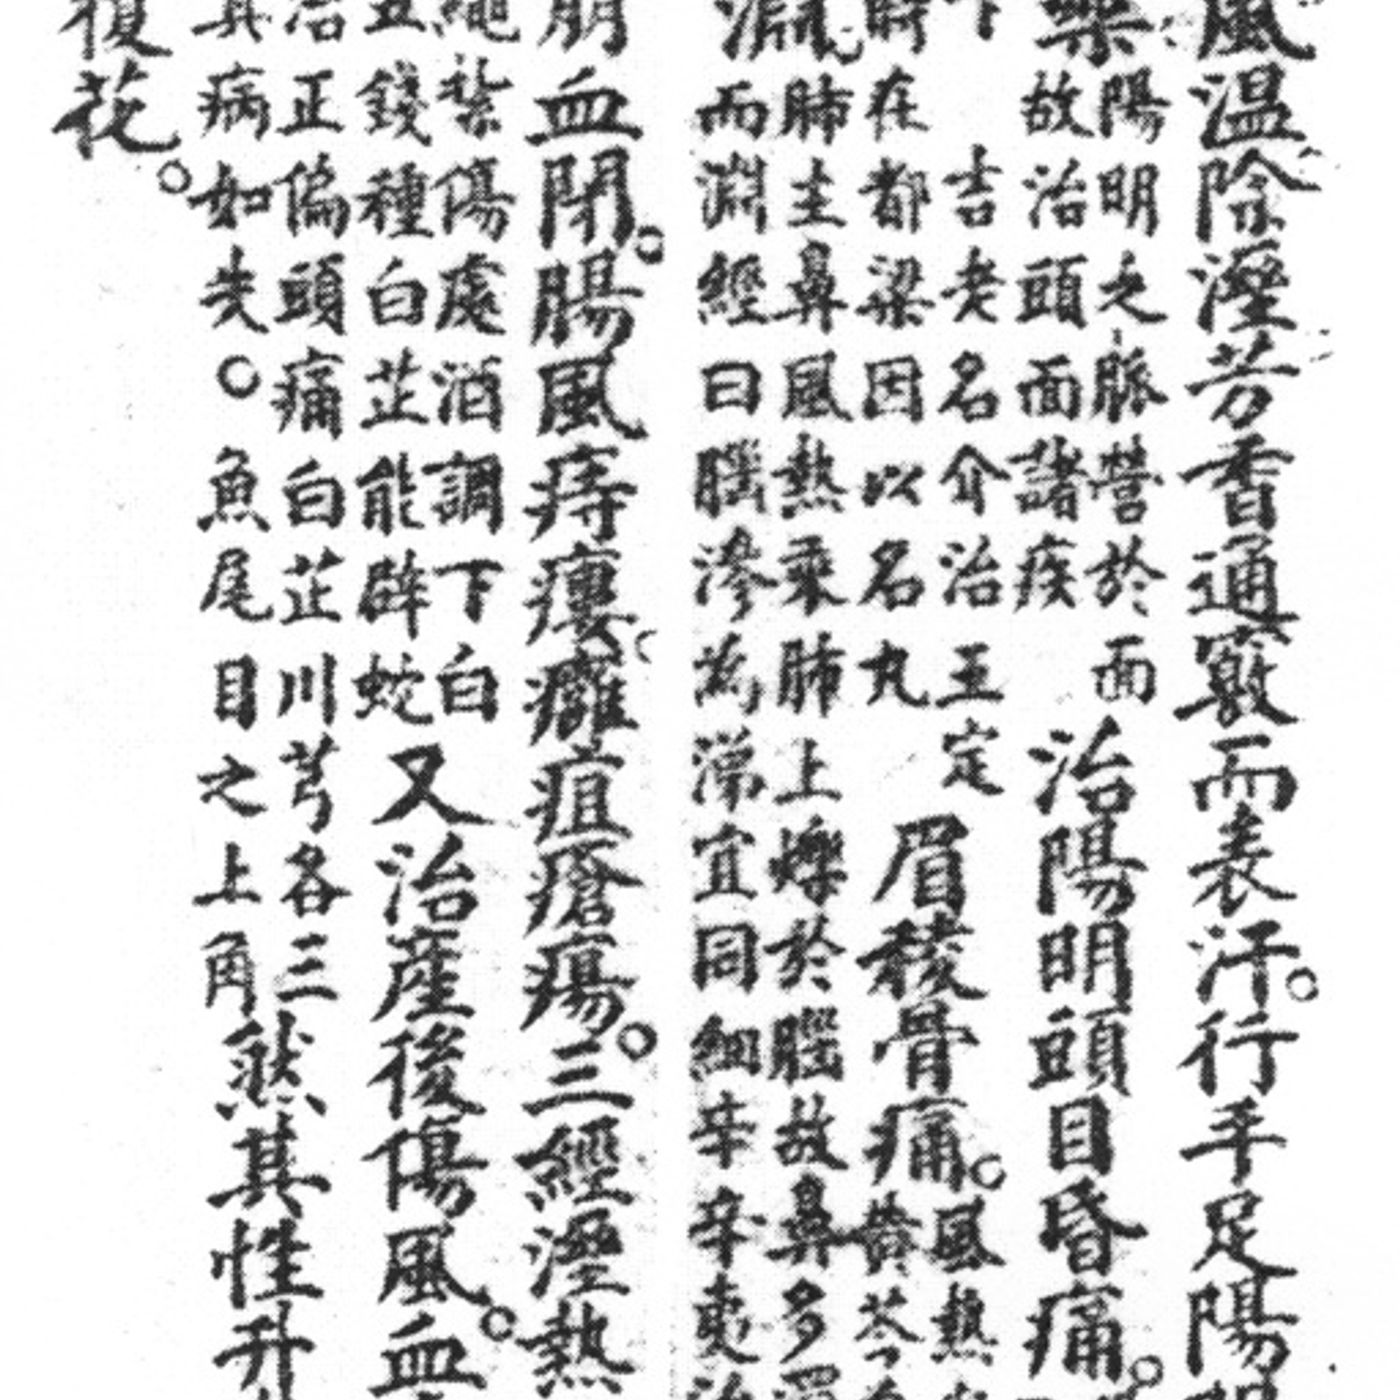 風温除溼芳香通竅而表汗。行手足陽
藥
陽明之脈營於面
故治頭面諸疾
治陽明頭目昏痛。
下
吉老名介治王定
時在都梁因以名丸
眉稜骨痛。
風熱
黃芩
淵
肺主鼻風熱乘肺上爍於腦故鼻多
而淵經曰腦滲為涕宜同細辛辛夷治
崩血閉。腸風痔瘻。癰疽瘡瘍。三經溼熱
繩紮傷處酒調下白
五錢種白芷能辟蛇
又治產後傷風。血
治正偏頭痛白芷川芎各三
其病如失。魚尾目之上角
然其性升
復花。